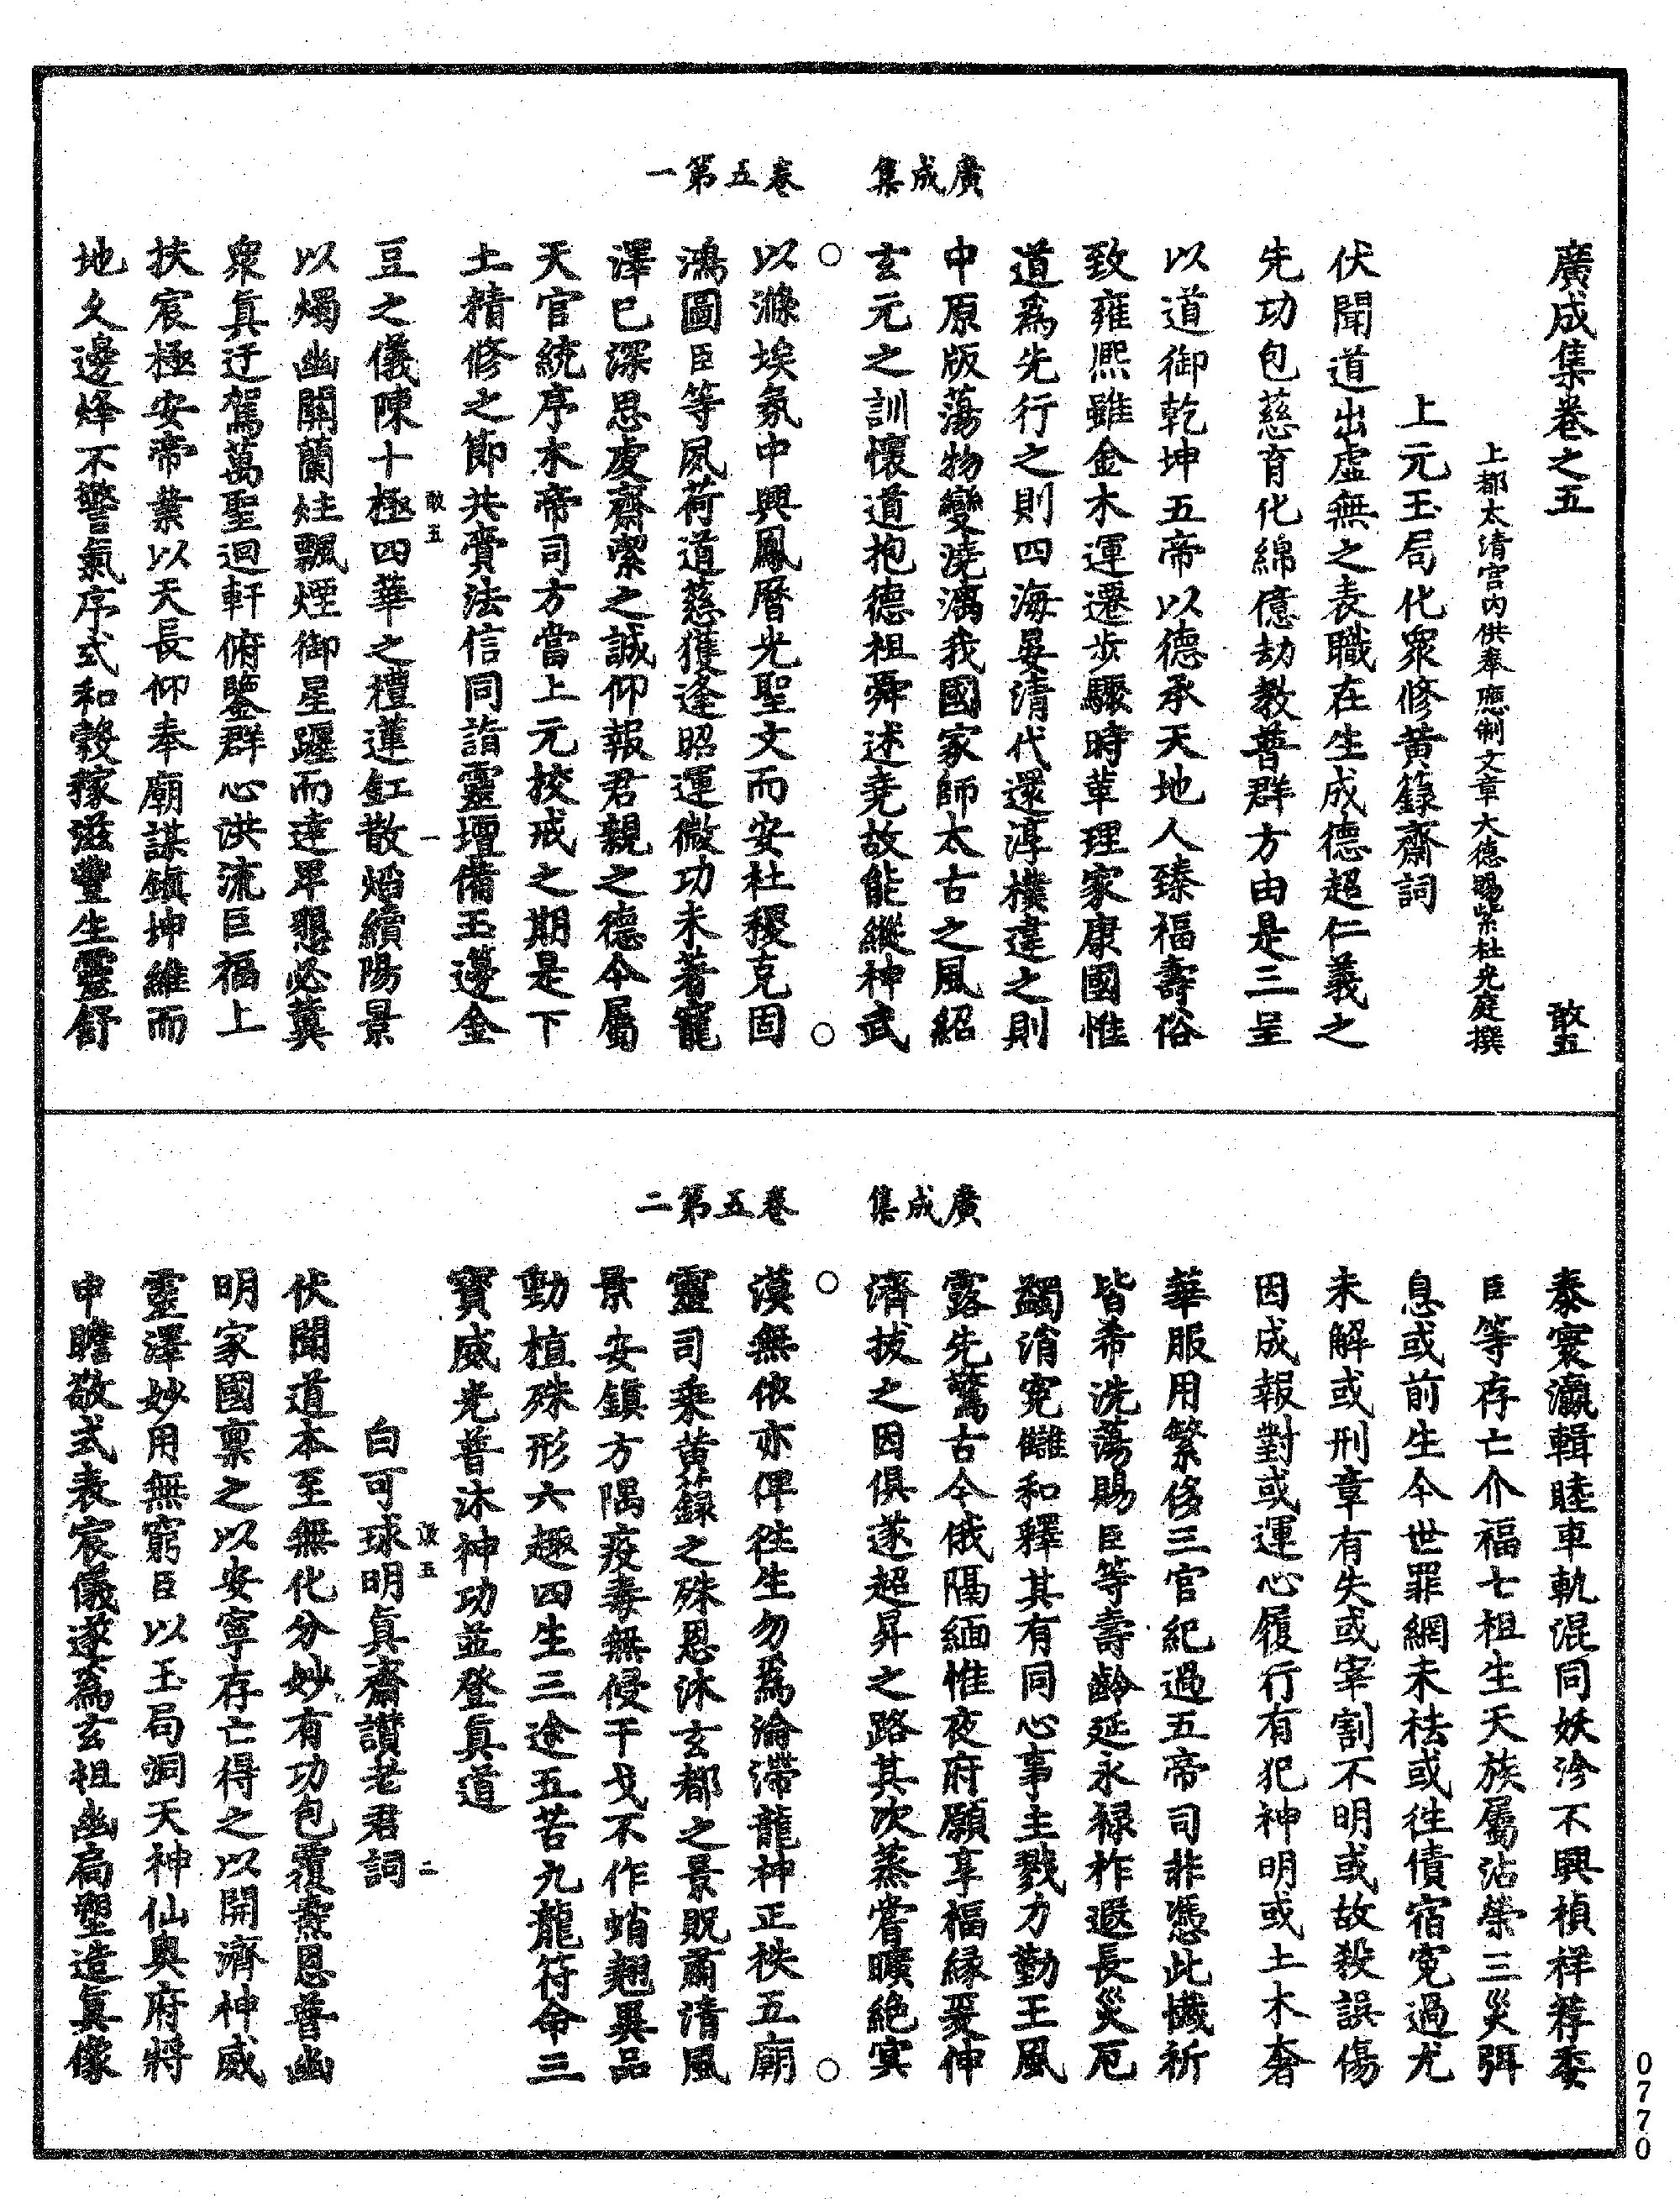 廣成集　卷五第一
廣成集卷之五　敢五
上都太清宮內供奉應制文章大德賜紫杜光庭撰
上元玉局化眾修黃籙齋詞
伏聞道出虛無之表職在生成德超仁義之
先功包慈育化綿億劫教普群方由是三皇
以道御乾坤五帝以德承天地人臻福壽俗
致雍熙雖金木運遷步驟時革理家康國惟
道為先行之則四海晏清代還淳樸違之則
中原版蕩物變澆漓我國家師太古之風紹
玄元之訓懷道抱德祖舜述堯故能縱神武
以滌埃氛中興鳳曆光聖文而安社稷克固
鴻圖臣等夙荷道慈獲逢昭運微功未著寵
澤已深思虔齋潔之誠仰報君親之德今屬
天官統序木帝司方當上元校戒之期是下
土精修之節共賷法信同詣靈壇備玉邊金
豆之儀陳十極四華之禮蓮釭散焰續陽景
敢五　一
以燭幽關蘭炷飄煙御星躔而達卑懇必冀
眾真迂駕萬聖迴軒俯鑒群心洪流巨福上
扶宸極安帝業以天長仰奉廟謀鎮坤維而
地久邊烽不警氣序式和穀稼滋豐生靈舒
廣成集　卷五第二
泰寰瀛輯睦車軌混同妖沴不興禎祥荐委
臣等存亡介福七祖生天族屬沾榮三災弭
息或前生今世罪網未祛或往債宿冤過尤
未解或刑章有失或宰割不明或故殺誤傷
因成報對或運心履行有犯神明或土木奢
華服用繁侈三官紀過五帝司非憑此懺祈
皆希洗蕩賜臣等壽齡延永祿祚遐長災厄
蠲消冤讎和釋其有同心事主戮力勤王風
露先驚古今俄隔緬惟夜府願享福緣爰伸
濟拔之因俱遂超昇之路其次蒸嘗曠絕冥
漠無依亦俾往生勿為淪滯龍神正秩五廟
靈司乘黃籙之殊恩沐玄都之景貺肅清風
景安鎮方隅疫毒無侵干戈不作蛸翹異品
動植殊形六趣四生三途五苦九龍符命三
寶威光普沐神功並登真道
白可球明真齋讚老君詞
敢五　二
伏聞道本至無化分妙有功包覆燾恩普幽
明家國稟之以安寧存亡得之以開濟神威
靈澤妙用無窮臣以玉局洞天神仙奧府將
申瞻敬式表宸儀遂為玄祖幽扃塑造真像
0770